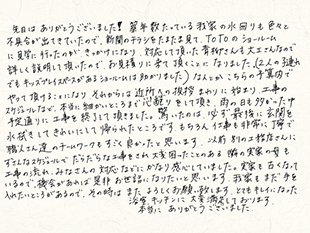 先日は ありがとうございました!! 築年数たっている 我家の 水回りも 色々と
不具合が出てきていたので、新聞のチラシをたまたま見て、TOTOのショールーム
に 見学に行ったのが きっかけになり、対応して頂いた 青柳さんも 大工さんなので
詳しく説明して頂いたので、お見積りに来て頂くことに なりました。(2人の子連れ
でも キッズプレイスペースがあるショールームは助かりました) なんとか こちらの予算内で
やって頂けることになり、それからは 近所への挨拶まわりに始まり、工事の
スケジュールなど、本当に細かいところまで心配りをして頂き、雨の日も多かった中
予定通りに工事を終えて頂きました。驚いたのは、必ず最後に玄関を
水拭きして きれいにして 帰られたところです。もちろん工事も非常に丁寧で
職人さん達のチームワークもすごく良かったと思います。以前 別の工務店さんに
ずさんなスケジュールで だらだらな工事をされ 大変困ったことのある 隣の実家の母も
工事の流れ、みなさんの対応などに かなり感心していました。実家も古くなって
いるので、機会があれば是非お世話になりたいと思います。我家もまだ手を
入れたいところがあるので、その時は また よろしくお願い致します。とてもキレイになった
浴室、キッチンに 大変満足しております。
本当に ありがとうございました。